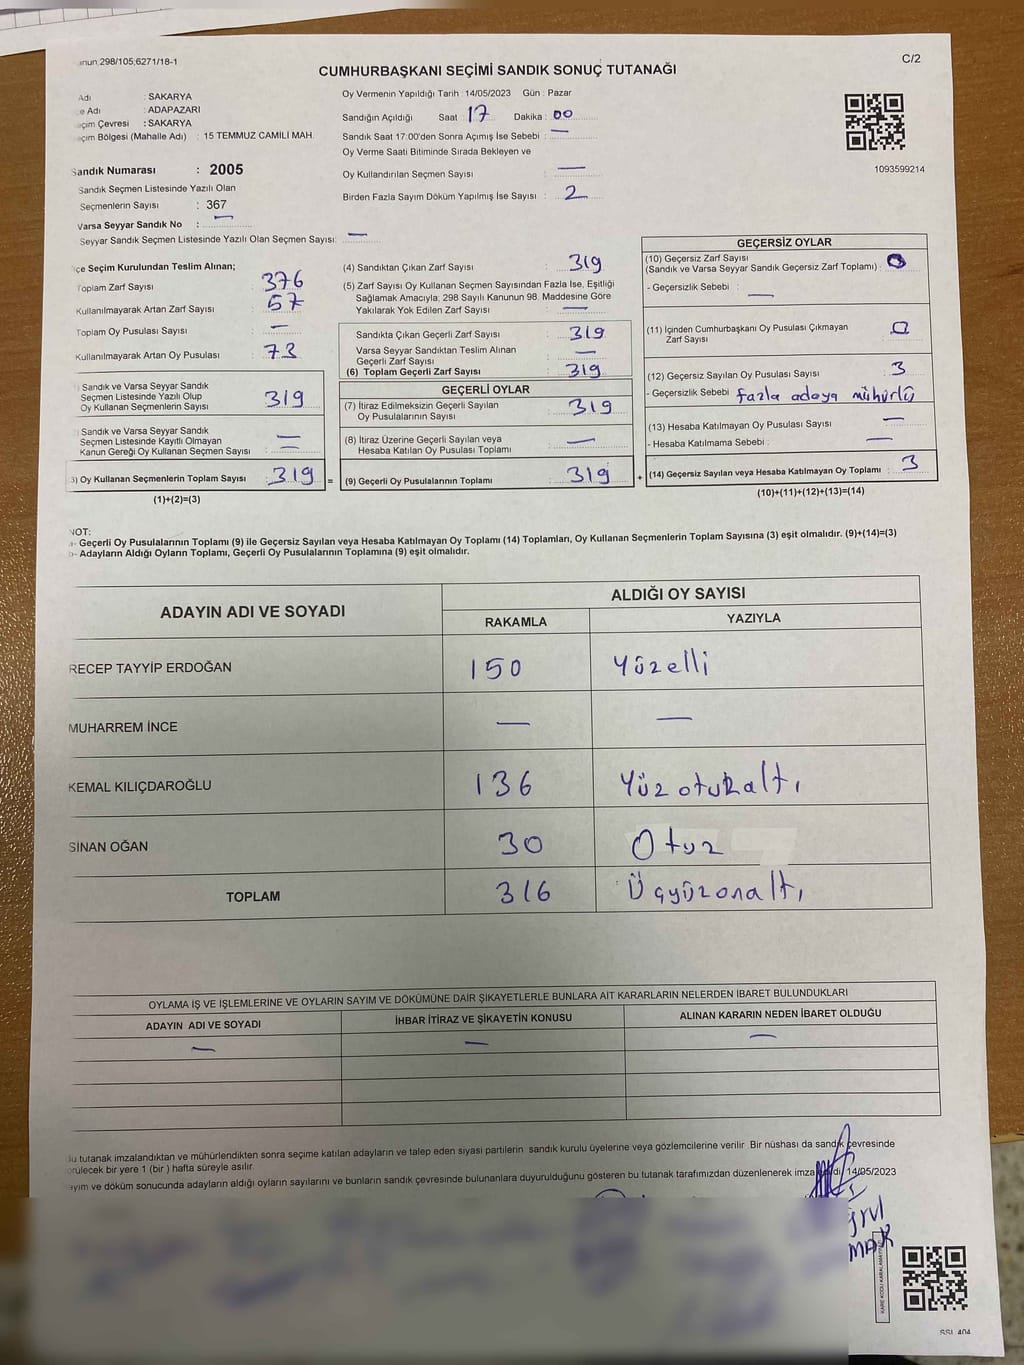 anun.298/105,6271/18-1
C/2
CUMHURBAŞKANI SEÇİMİ SANDIK SONUÇ TUTANAĞI
Adı : SAKARYA
e Adı : ADAPAZARI
eçim Çevresi : SAKARYA
eçim Bölgesi (Mahalle Adı) : 15 TEMMUZ CAMİLİ MAH.
Sandık Numarası : 2005
Sandık Seçmen Listesinde Yazılı Olan
Seçmenlerin Sayısı : 367
Varsa Seyyar Sandık No : —
Seyyar Sandık Seçmen Listesinde Yazılı Olan Seçmen Sayısı: —
Oy Vermenin Yapıldığı Tarih : 14/05/2023 Gün : Pazar
Sandığın Açıldığı Saat : 17 Dakika : 00
Sandık Saat 17:00'den Sonra Açımış İse Sebebi : —
Oy Verme Saati Bitiminde Sırada Bekleyen ve
Oy Kullandırılan Seçmen Sayısı : —
Birden Fazla Sayım Döküm Yapılmış İse Sayısı : 2
1093599214
lçe Seçim Kurulundan Teslim Alınan;
Toplam Zarf Sayısı : 376
Kullanılmayarak Artan Zarf Sayısı : 57
Toplam Oy Pusulası Sayısı : —
Kullanılmayarak Artan Oy Pusulası : 73
Sandık ve Varsa Seyyar Sandık
Seçmen Listesinde Yazılı Olup
Oy Kullanan Seçmenlerin Sayısı : 319
Sandık ve Varsa Seyyar Sandık
Seçmen Listesinde Kayıtlı Olmayan
Kanun Gereği Oy Kullanan Seçmen Sayısı : —
3) Oy Kullanan Seçmenlerin Toplam Sayısı : 319 =
(1)+(2)=(3)
(4) Sandıktan Çıkan Zarf Sayısı : 319
(5) Zarf Sayısı Oy Kullanan Seçmen Sayısından Fazla İse, Eşitliği
Sağlamak Amacıyla; 298 Sayılı Kanunun 98. Maddesine Göre
Yakılarak Yok Edilen Zarf Sayısı : —
Sandıkta Çıkan Geçerli Zarf Sayısı : 319
Varsa Seyyar Sandıktan Teslim Alınan
Geçerli Zarf Sayısı : —
(6) Toplam Geçerli Zarf Sayısı : 319
GEÇERLİ OYLAR
(7) İtiraz Edilmeksizin Geçerli Sayılan
Oy Pusulalarının Sayısı : 319
(8) İtiraz Üzerine Geçerli Sayılan veya
Hesaba Katılan Oy Pusulası Toplamı : —
(9) Geçerli Oy Pusulalarının Toplamı : 319 +
GEÇERSİZ OYLAR
(10) Geçersiz Zarf Sayısı
(Sandık ve Varsa Seyyar Sandık Geçersiz Zarf Toplamı) : 0
- Geçersizlik Sebebi : —
(11) İçinden Cumhurbaşkanı Oy Pusulası Çıkmayan
Zarf Sayısı : 0
(12) Geçersiz Sayılan Oy Pusulası Sayısı : 3
- Geçersizlik Sebebi : fazla adaya mühürlü
(13) Hesaba Katılmayan Oy Pusulası Sayısı : —
- Hesaba Katılmama Sebebi : —
(14) Geçersiz Sayılan veya Hesaba Katılmayan Oy Toplamı : 3
(10)+(11)+(12)+(13)=(14)
NOT:
a- Geçerli Oy Pusulalarının Toplamı (9) ile Geçersiz Sayılan veya Hesaba Katılmayan Oy Toplamı (14) Toplamları, Oy Kullanan Seçmenlerin Toplam Sayısına (3) eşit olmalıdır. (9)+(14)=(3)
b- Adayların Aldığı Oyların Toplamı, Geçerli Oy Pusulalarının Toplamına (9) eşit olmalıdır.
ADAYIN ADI VE SOYADI ALDIĞI OY SAYISI
RAKAMLA YAZIYLA
RECEP TAYYİP ERDOĞAN 150 Yüzelli
MUHARREM İNCE — —
KEMAL KILIÇDAROĞLU 136 Yüzotuzaltı
SİNAN OĞAN 30 Otuz
TOPLAM 316 Üçyüzonaltı
OYLAMA İŞ VE İŞLEMLERİNE VE OYLARIN SAYIM VE DÖKÜMÜNE DAİR ŞİKAYETLERLE BUNLARA AİT KARARLARIN NELERDEN İBARET BULUNDUKLARI
ADAYIN ADI VE SOYADI İHBAR İTİRAZ VE ŞİKAYETİN KONUSU ALINAN KARARIN NEDEN İBARET OLDUĞU
— — —
Bu tutanak imzalandıktan ve mühürlendikten sonra seçime katılan adayların ve talep eden siyasi partilerin sandık kurulu üyelerine veya gözlemcilerine verilir. Bir nüshası da sandık çevresinde
görülecek bir yere 1 (bir) hafta süreyle asılır.
ayım ve döküm sonucunda adayların aldığı oyların sayılarını ve bunların sandık çevresinde bulunanlara duyurulduğunu gösteren bu tutanak tarafımızdan düzenlenerek imzalandı. 14/05/2023